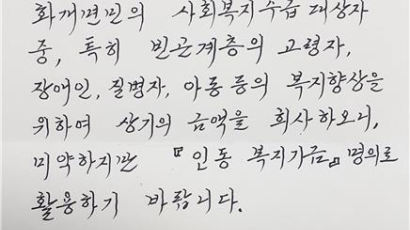 화개면민의 사회복지수급 대상자
중, 특히 빈곤계층의 고령자,
장애인, 질병자, 아동 등의 복지향상을
위하여 상기의 금액을 희사하오니,
미약하지만 『인동 복지기금』 명의로
활용하기 바랍니다.